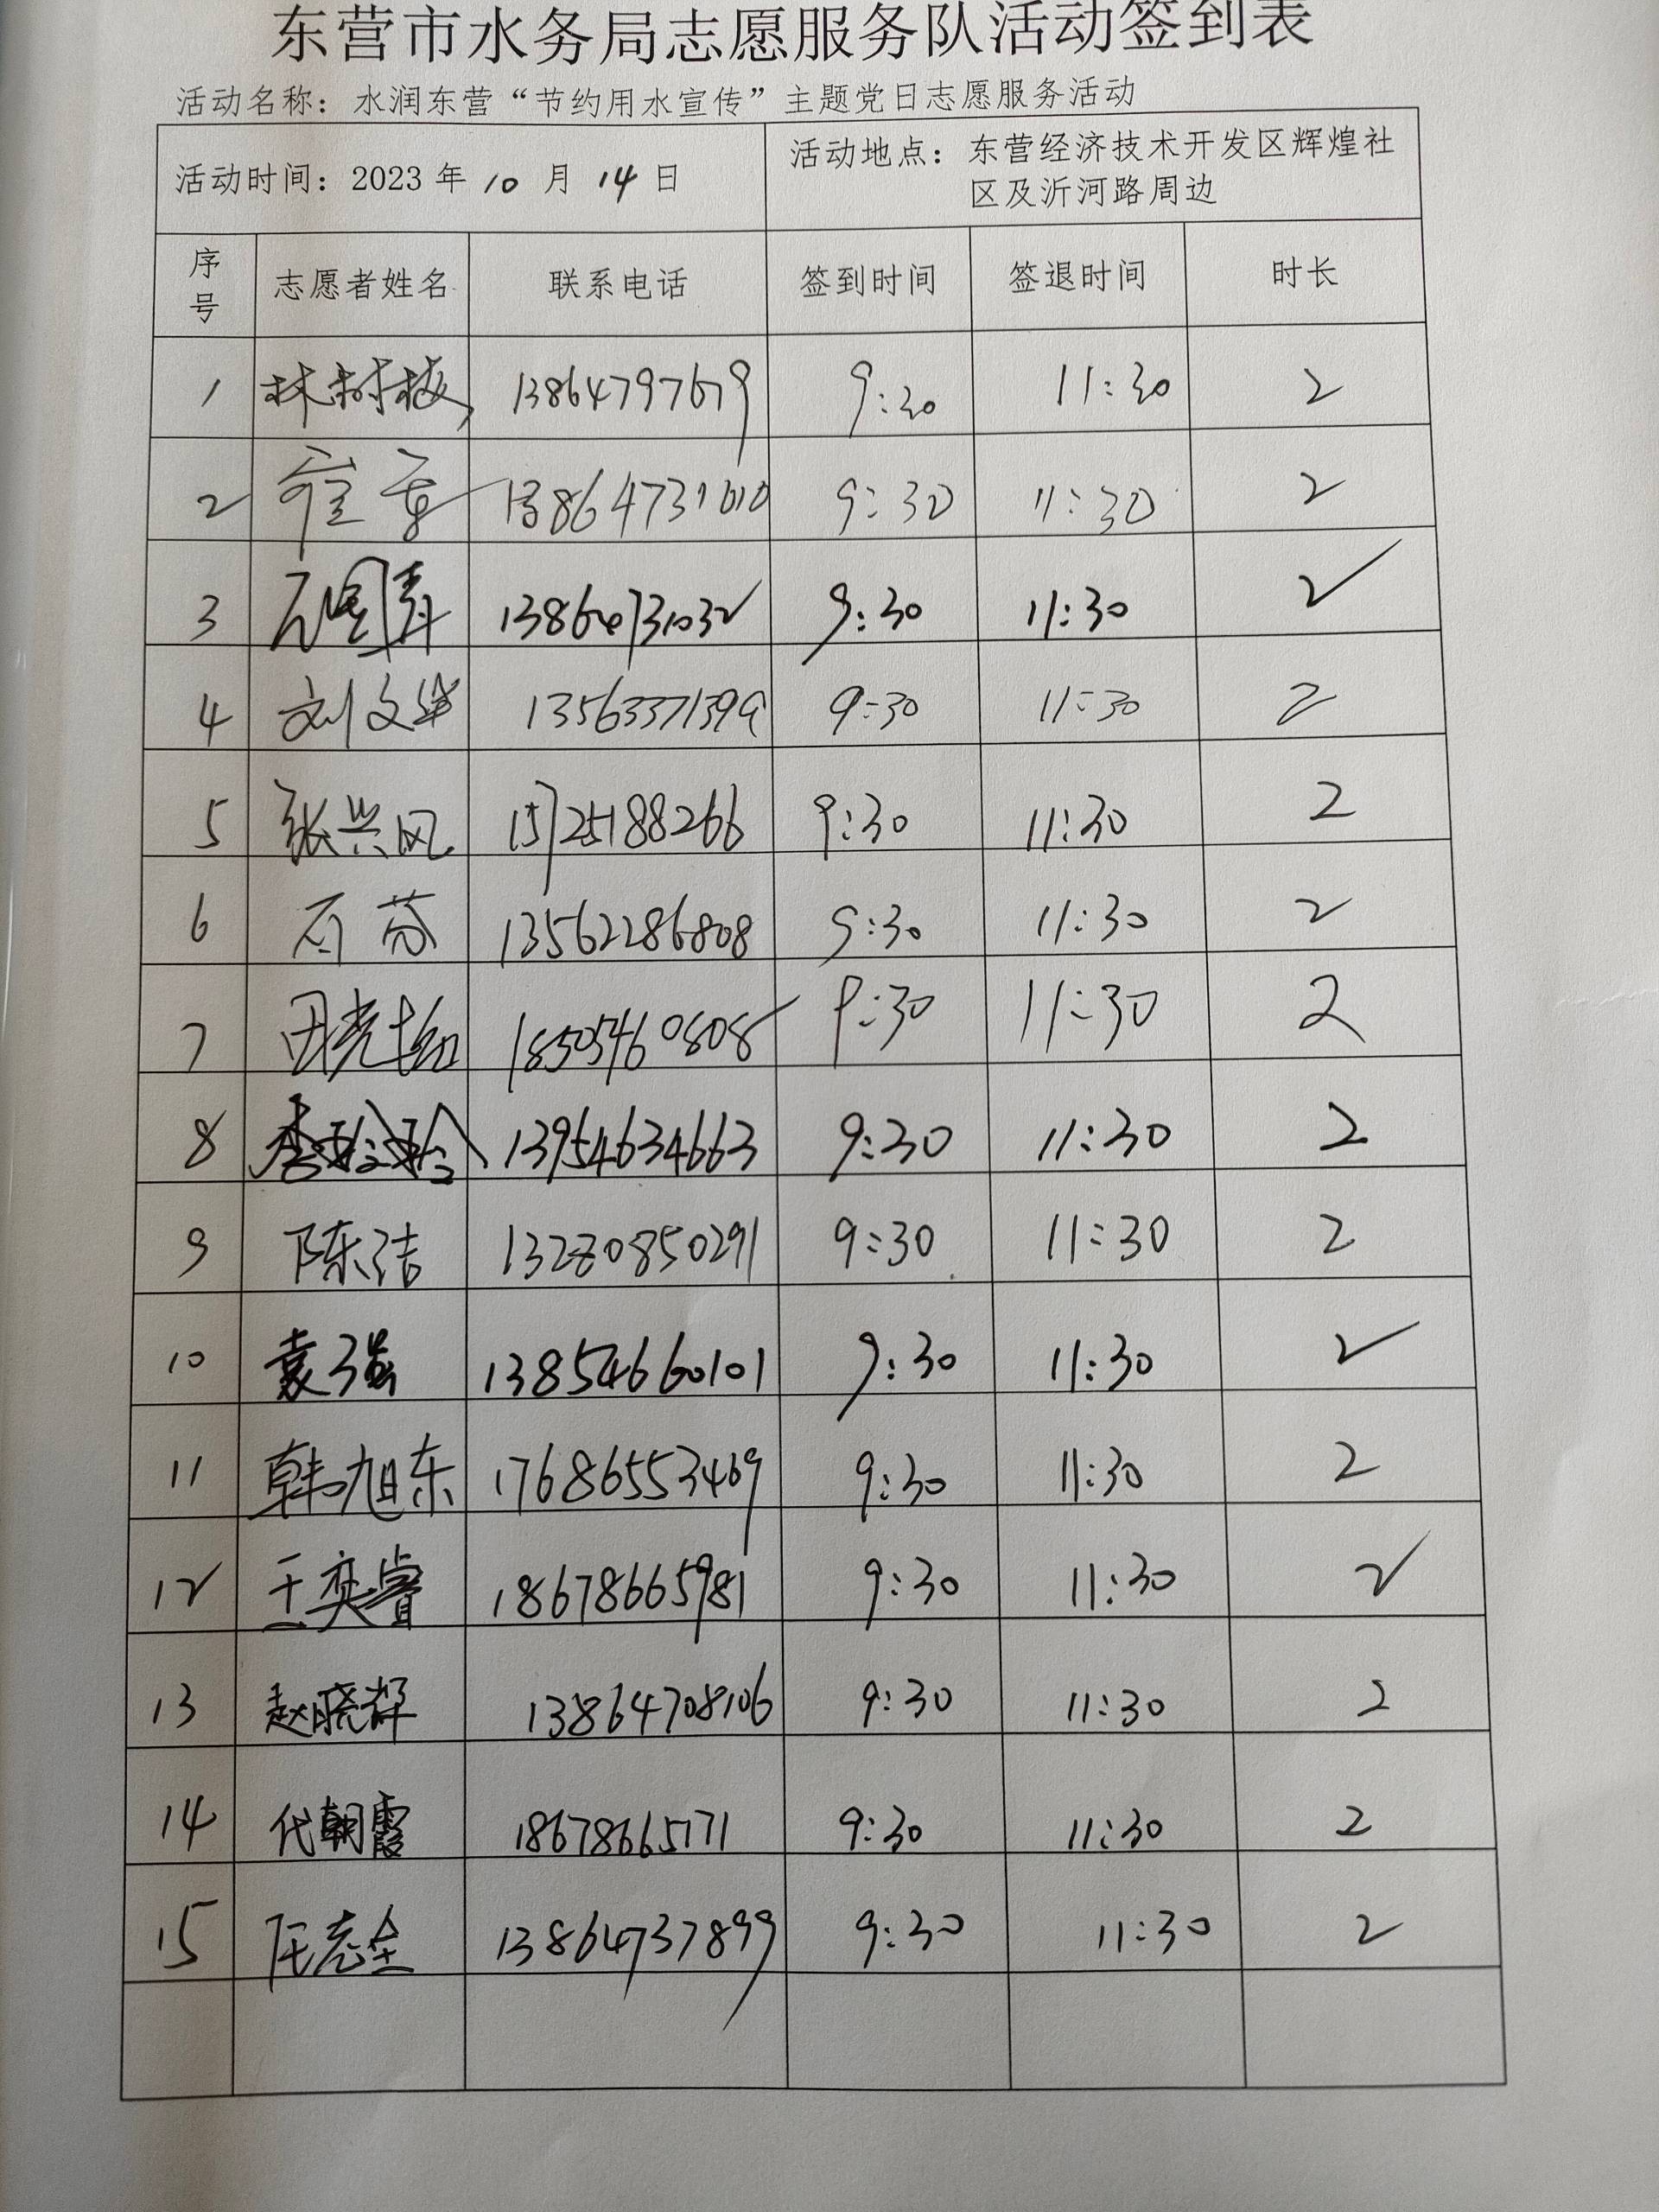 东营市水务局志愿服务队活动签到表
活动名称：水润东营“节约用水宣传”主题党日志愿服务活动
活动时间：2023 年 10 月 14 日 活动地点：东营经济技术开发区辉煌社
区及沂河路周边
序号 志愿者姓名 联系电话 签到时间 签退时间 时长
1 林树梅 13864797679 9:30 11:30 2
2 13864731010 9:30 11:30 2
3 13864731032 9:30 11:30 2
4 刘文华 13563371399 9:30 11:30 2
5 张兴风 15725188266 9:30 11:30 2
6 石芬 13562286808 9:30 11:30 2
7 18505460808 9:30 11:30 2
8 李玲玲 13954634663 9:30 11:30 2
9 陈洁 13280850291 9:30 11:30 2
10 袁强 13854660101 9:30 11:30 2
11 韩旭东 17686553469 9:30 11:30 2
12 王奕睿 18678665981 9:30 11:30 2
13 赵晓辉 13864708106 9:30 11:30 2
14 代朝霞 18678665771 9:30 11:30 2
15 任志全 13864737899 9:30 11:30 2